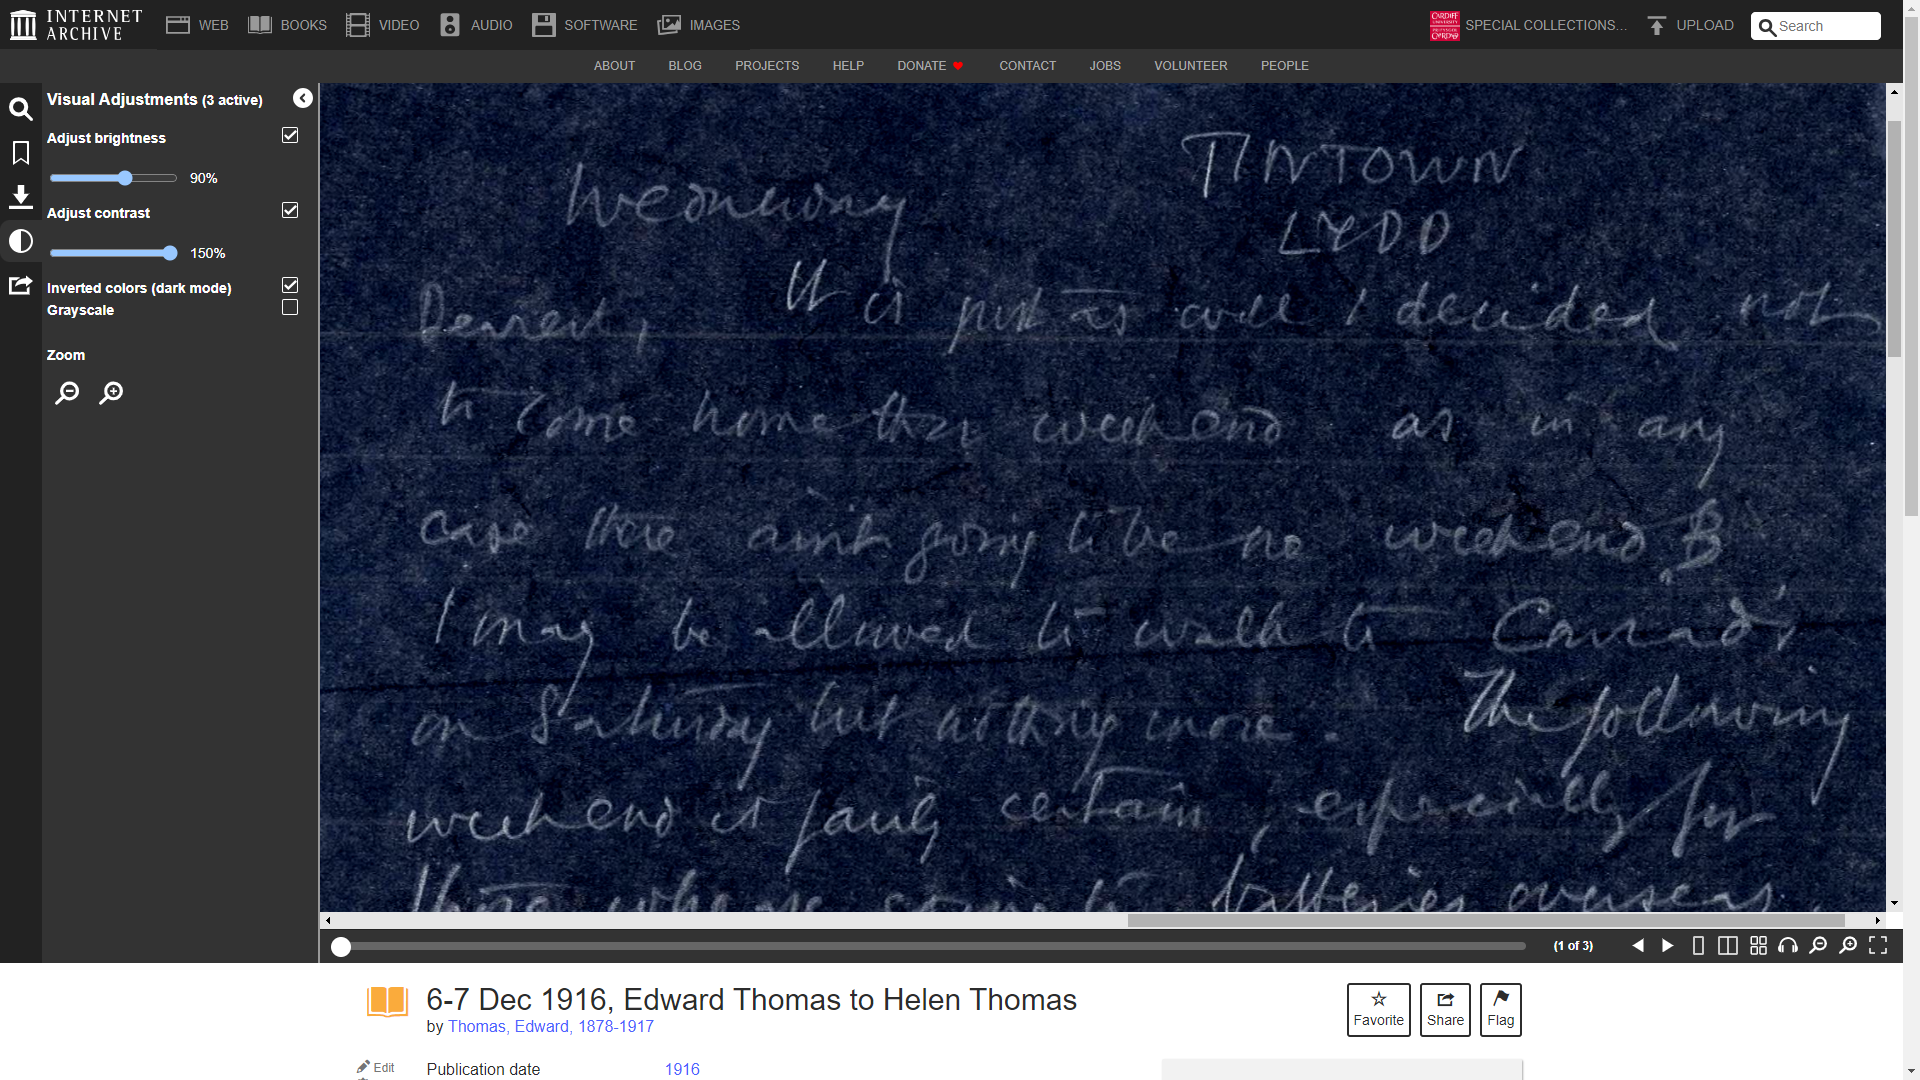 INTERNET ARCHIVE
WEB
BOOKS
VIDEO
AUDIO
SOFTWARE
IMAGES
CARDIFF UNIVERSITY PRIFYSGOL CAERDYDD
SPECIAL COLLECTIONS...
UPLOAD
Search
ABOUT
BLOG
PROJECTS
HELP
DONATE
CONTACT
JOBS
VOLUNTEER
PEOPLE
Visual Adjustments (3 active)
Adjust brightness
90%
Adjust contrast
150%
Inverted colors (dark mode)
Grayscale
Zoom
TINTOWN
Wednesday
LYDD
Dearest, It is just as well I decided not
to come home this weekend as in any
case there aint going to be no weekend
I may be allowed to walk to Conrad's
on Saturday but nothing more. The following
weekend is fairly certain, especially for
those who are going to batteries overseas.
(1 of 3)
6-7 Dec 1916, Edward Thomas to Helen Thomas
by Thomas, Edward, 1878-1917
Favorite
Share
Flag
Edit
Publication date
1916